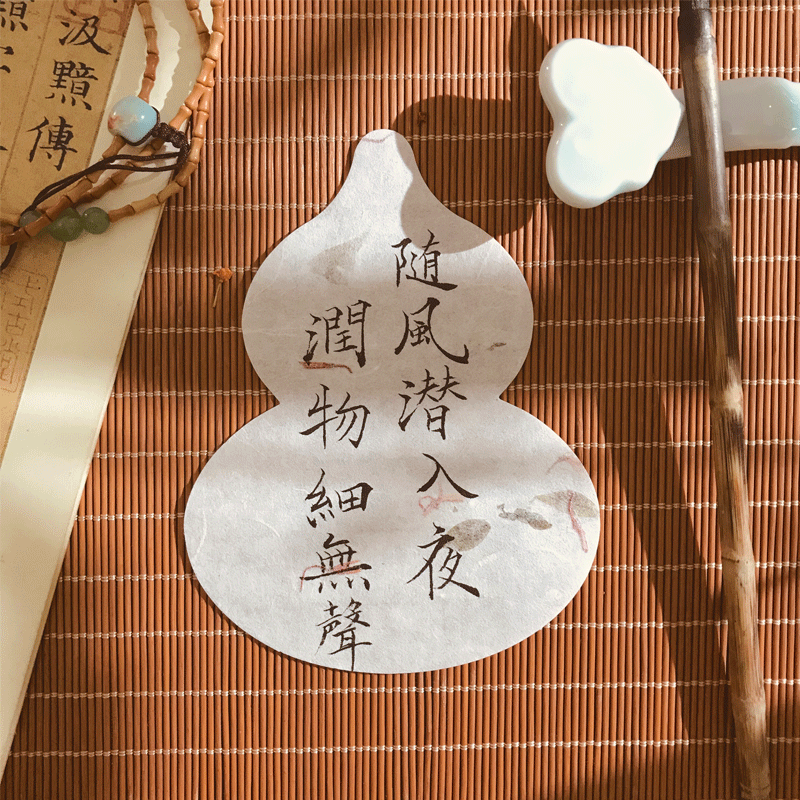 随風潜入夜
潤物細無聲
汲黯傳